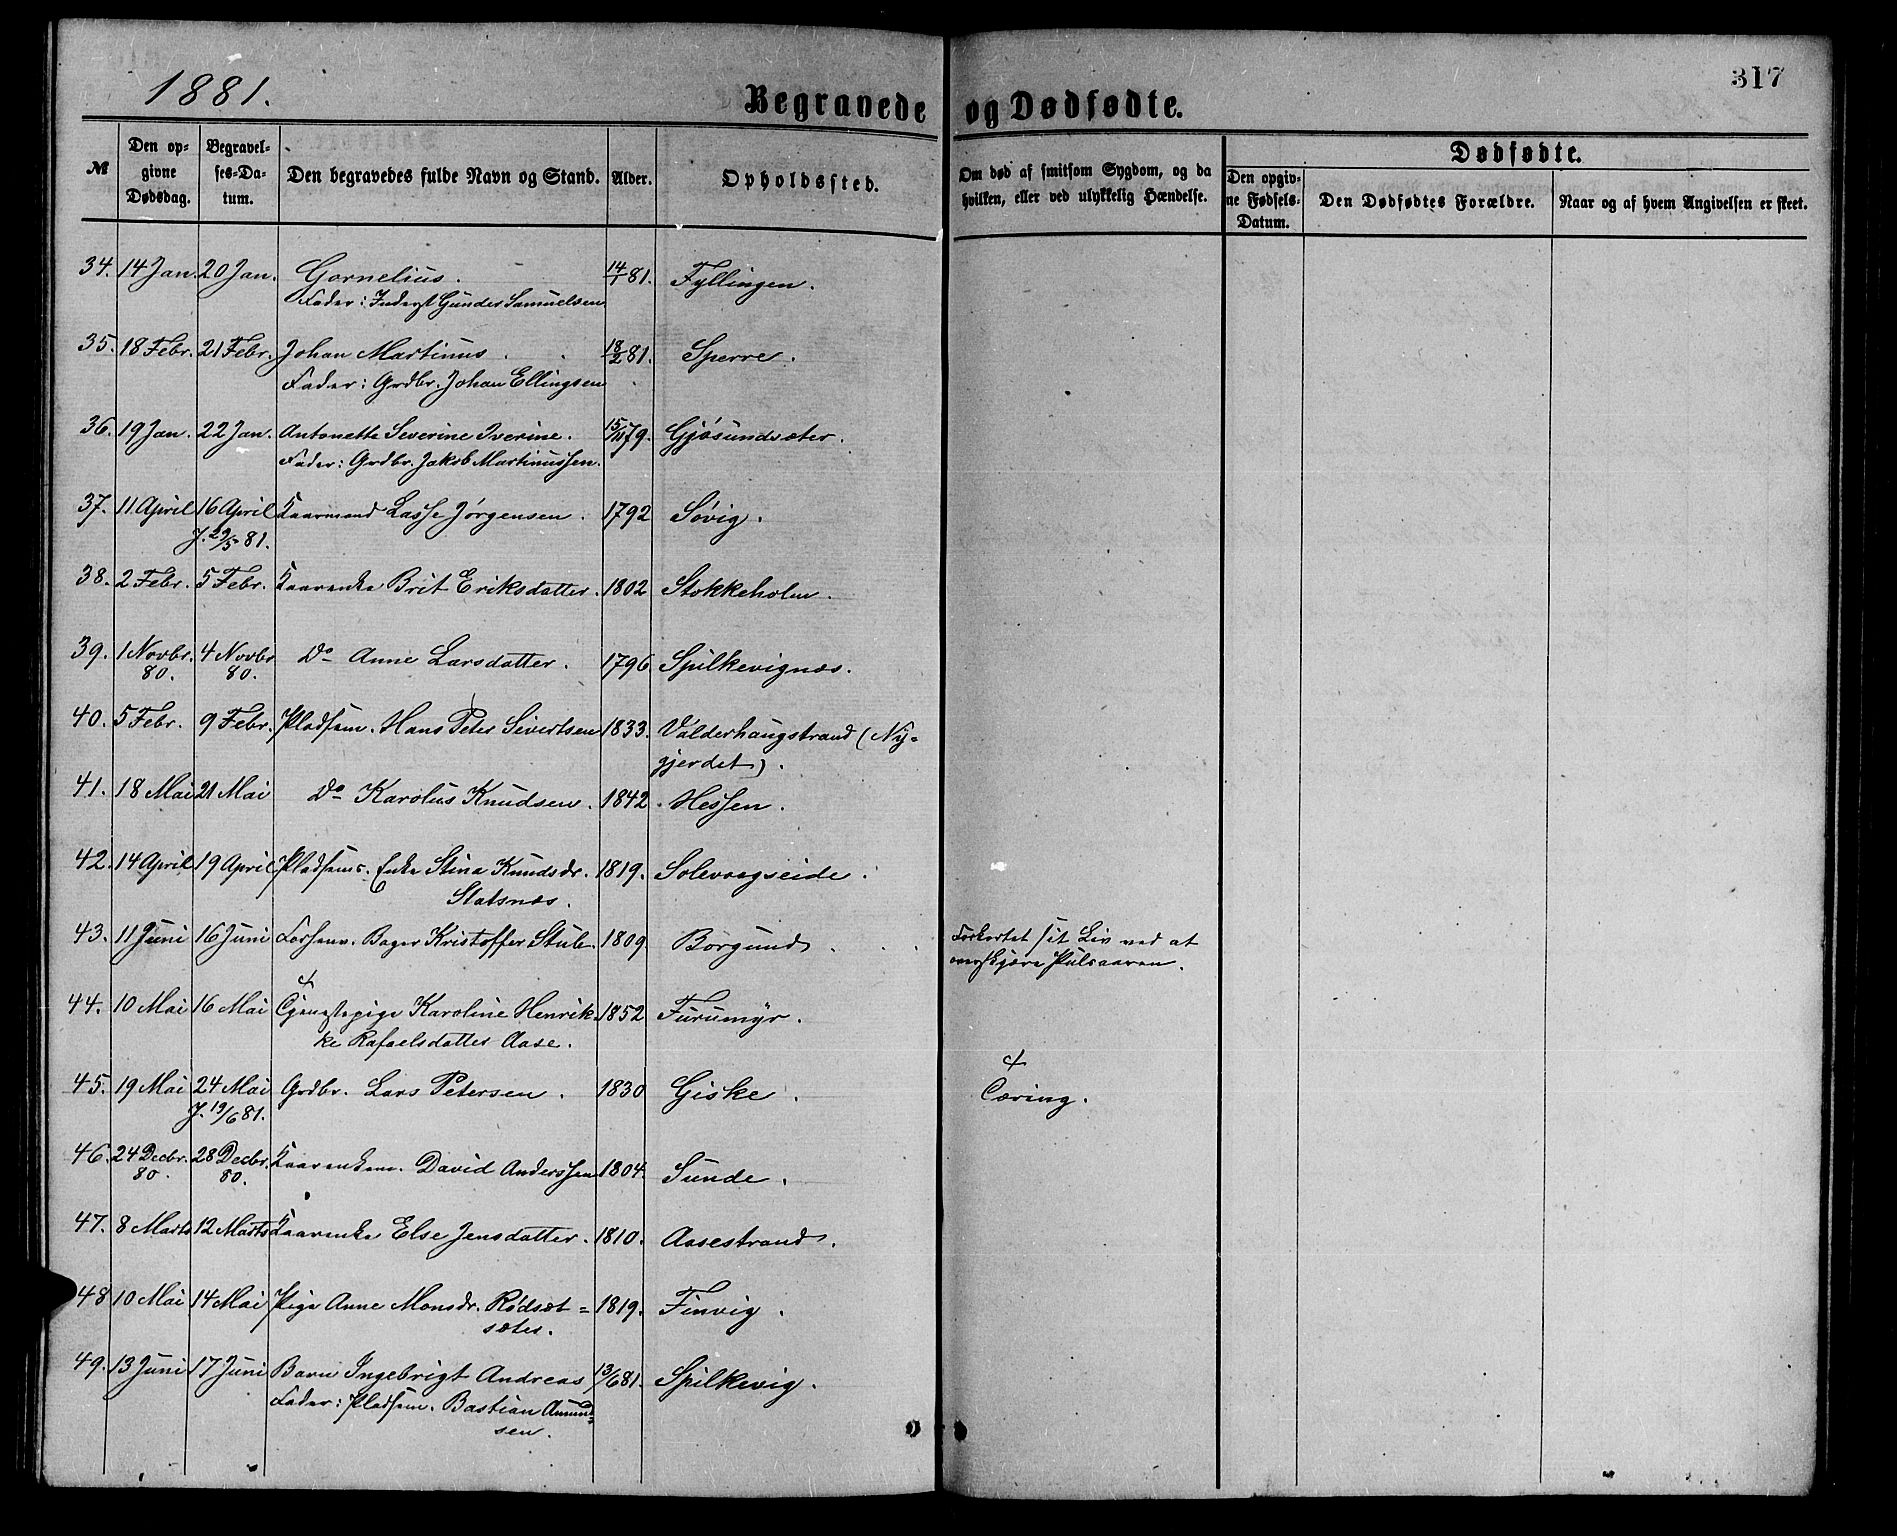 1881.
317
Begravede og Dødfødte.
№
Den opgivne Dødsdag.
Begravelses-Datum.
Den begravedes fulde Navn og Stand.
Alder.
Opholdssted.
Om død af smitsom Sygdom, og da hvilken, eller ved ulykkelig Hændelse.
Dødfødte.
Den opgivne Fødsels-Datum.
Den Dødfødtes Forældre.
Naar og af hvem Angivelsen er skeet.
34. 14 Jan. 20 Jan. Cornelius. 14/1 81. Fyllingen.
Fader: Inderst Gunder Samuelsen
35. 18 Febr. 21 Febr. Johan Martinus. 18/2 81. Sperre.
Fader: Grdbr. Johan Ellingsen
36. 19 Jan. 22 Jan. Antonette Severine Iverine. 79. Gjøsundsæter.
Fader: Grdbr. Jakob Martinussen.
37. 11 April 16 April Kaarmand Lasse Jørgensen. 1792 Søvig.
J. 29/5 81.
38. 2 Febr. 5 Febr. Kaarenke Brit Eriksdatter. 1802 Stokkeholm.
39. 1 Novbr. 4 Novbr. Do Anne Larsdatter. 1796 Spilkevignæs.
80. 80.
40. 5 Febr. 9 Febr. Pladsem. Hans Peter Sivertsen 1833. Valderhaugstrand (Ny=
gjerdet).
41. 18 Mai 21 Mai Do Karolus Knudsen. 1842. Hessen.
42. 14 April 19 April Pladsems. Enke Stina Knudsdr. 1819. Solevaagseide.
Slatsnæs.
43. 11 Juni 16 Juni Forhenv. Bager Kristoffer Stub. 1809. Borgund. Forkortet sit Liv ved at
overskjære Pulsaaren.
44. 10 Mai 16 Mai Tjenestepige Karoline Henrik= 1852 Furumyr.
ke Rafaelsdatter Aase.
45. 19 Mai 24 Mai Grdbr. Lars Petersen. 1830 Giske. Tæring.
J. 19/6 81.
46. 24 Decbr. 28 Decbr. Kaarenkem. David Anderssen 1804. Sunde.
80. 80.
47. 8 Marts 12 Marts Kaarenke Else Jensdatter. 1810. Aasestrand.
48 10 Mai 14 Mai Pige Anne Monsdr. Rødsæt= 1819. Finvig.
sæter.
49. 13 Juni 17 Juni Barn Ingebrigt Andreas 13/6 81. Spilkevig.
Fader: Pladsem. Bastian Amund=
sen.